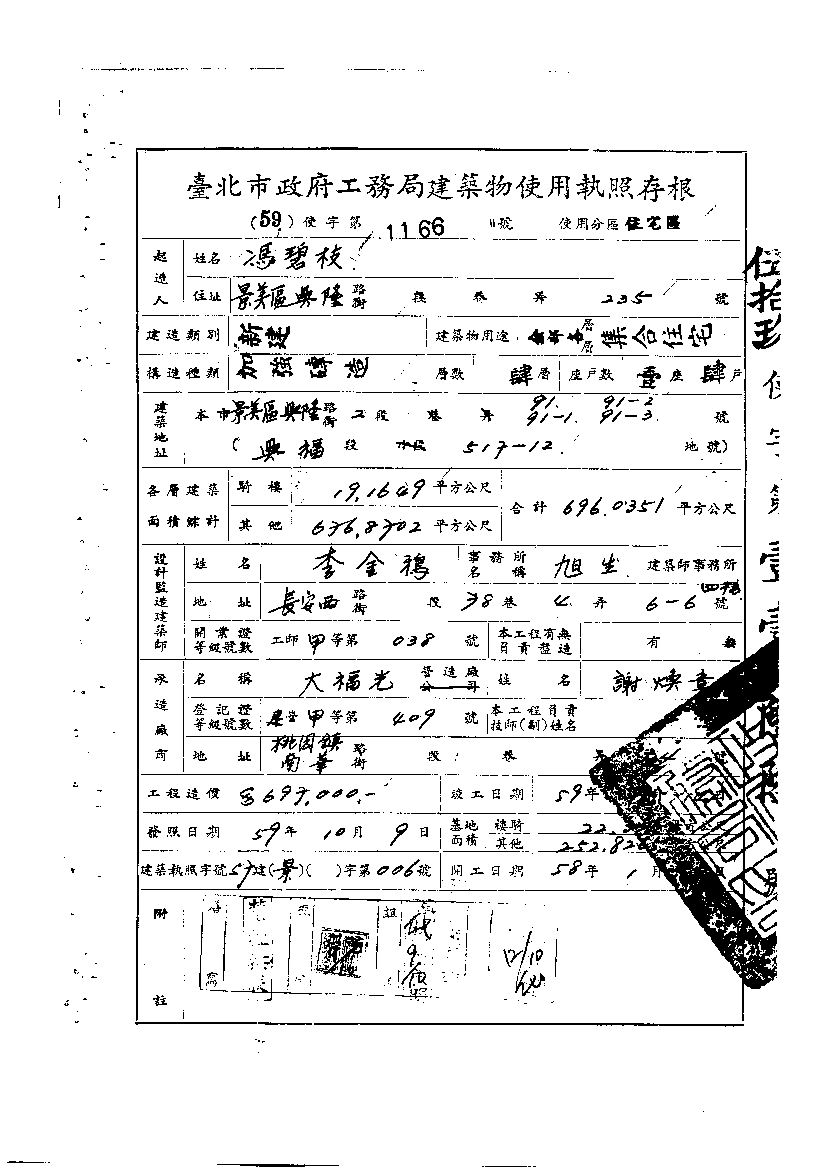 臺北市政府工務局建築物使用執照存根
(59) 使字第 1166 號 使用分區 住宅區
起造人 姓名 馮碧枝
住址 景美區興隆 路街 段 巷 弄 235 號
建造類別 新建 建築物用途 層層 集合住宅
構造種類 加強磚造 層數 肆層 座戶數 兩座 肆戶
建築地址 本市景美區興隆路街 2段 巷 弄 91. 91-1. 91-2 91-3. 號
(興福段 小段 517-12 地號)
各層建築面積綜計 騎樓 19.1649 平方公尺 合計 696.0351 平方公尺
其他 676.8702 平方公尺
設計監造建築師 姓名 李金鴉 事務所名稱 旭生 建築師事務所
地址 長安西路街 段 78巷 4弄 6-6號 四樓
開業證等級號數 工師甲等第 038 號 本工程有無負責監造 有 無
承造廠商 名稱 大福光 營造廠公司 姓名 謝煥章
登記證等級號數 甲等第 409 號 本工程負責技師(副)姓名
地址 桃園鎮南華 路街 段 巷 弄 號
工程造價 697,000.- 竣工日期 59年
發照日期 59年 10月 9日 基地面積 樓騎 22.
其他 252.82
建築執照字號 57建(景)( )字第006號 開工日期 58年 1月
附註
12/10
伍拾玖使字第壹壹